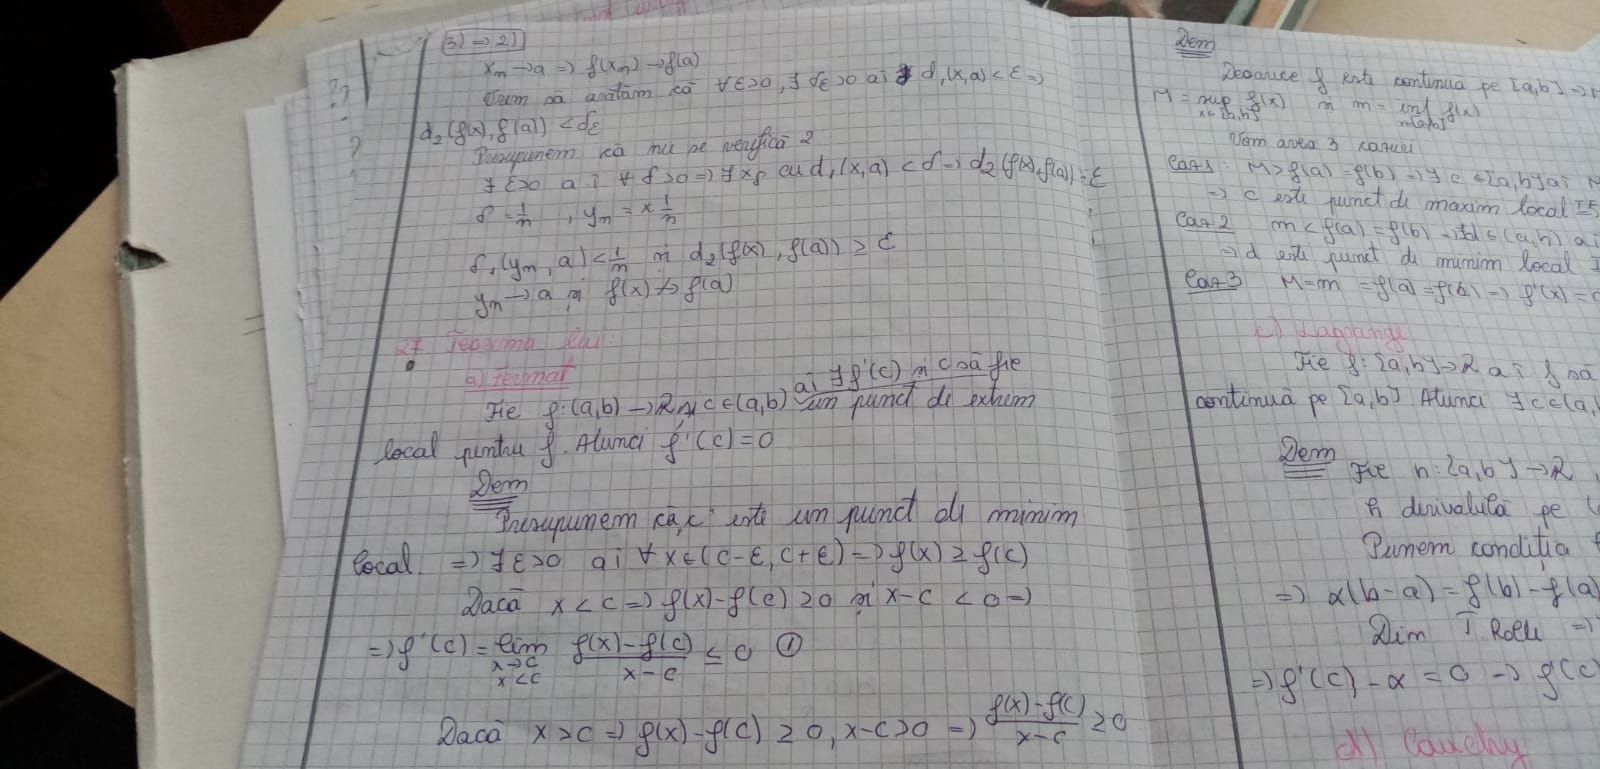 3) => 2)
xₙ → a => f(xₙ) → f(a)
Vrem să arătăm că ∀ε>0, ∃ δε>0 aî d₁(x,a) < ε =>
d₂(f(x), f(a)) < δε
Presupunem că nu se verifică 2
∃ ε>0 aî ∀ δ>0 => ∃ xδ cu d₁(x,a) < δ => d₂(f(x), f(a)) ≥ ε
δ = 1/n, yₙ = x 1/n
δ₁(yₙ, a) < 1/n și d₂(f(x), f(a)) ≥ ε
yₙ → a și f(x) ↛ f(a)
27 Teorema lui:
a) Fermat
aî ∃ f'(c) și c să fie
Fie f: (a,b) → R și c ∈ (a,b) un punct de extrem
local pentru f. Atunci f'(c) = 0
Dem
Presupunem că "c" este un punct de minim
local. => ∃ ε>0 aî ∀ x ∈ (c-ε, c+ε) => f(x) ≥ f(c)
Dacă x < c => f(x) - f(c) ≥ 0 și x-c < 0 =>
=> f'(c) = lim x→c x<c (f(x) - f(c))/(x-c) ≤ 0 ①
Dacă x > c => f(x) - f(c) ≥ 0, x-c > 0 => (f(x) - f(c))/(x-c) ≥ 0
Dem
Deoarece f este continuă pe [a,b] =>
M = sup x∈[a,b] f(x) și m = inf x∈[a,b] f(x)
Vom avea 3 cazuri
Caz 1: M > f(a) = f(b) => ∃ c ∈ [a,b] aî
=> c este punct de maxim local
Caz 2 m < f(a) = f(b) => ∃ d ∈ (a,b) aî
=> d este punct de minim local
Caz 3 M = m = f(a) = f(b) => f'(x) =
c) Lagrange
Fie f: [a,b] → R aî f să
continuă pe [a,b] Atunci ∃ c ∈ (a,
Dem Fie h: [a,b] → R
h derivabilă pe
Punem condiția
=> α(b-a) = f(b) - f(a)
Din T Rolle =>
=> f'(c) - α = 0 => f'(c)
d) Cauchy